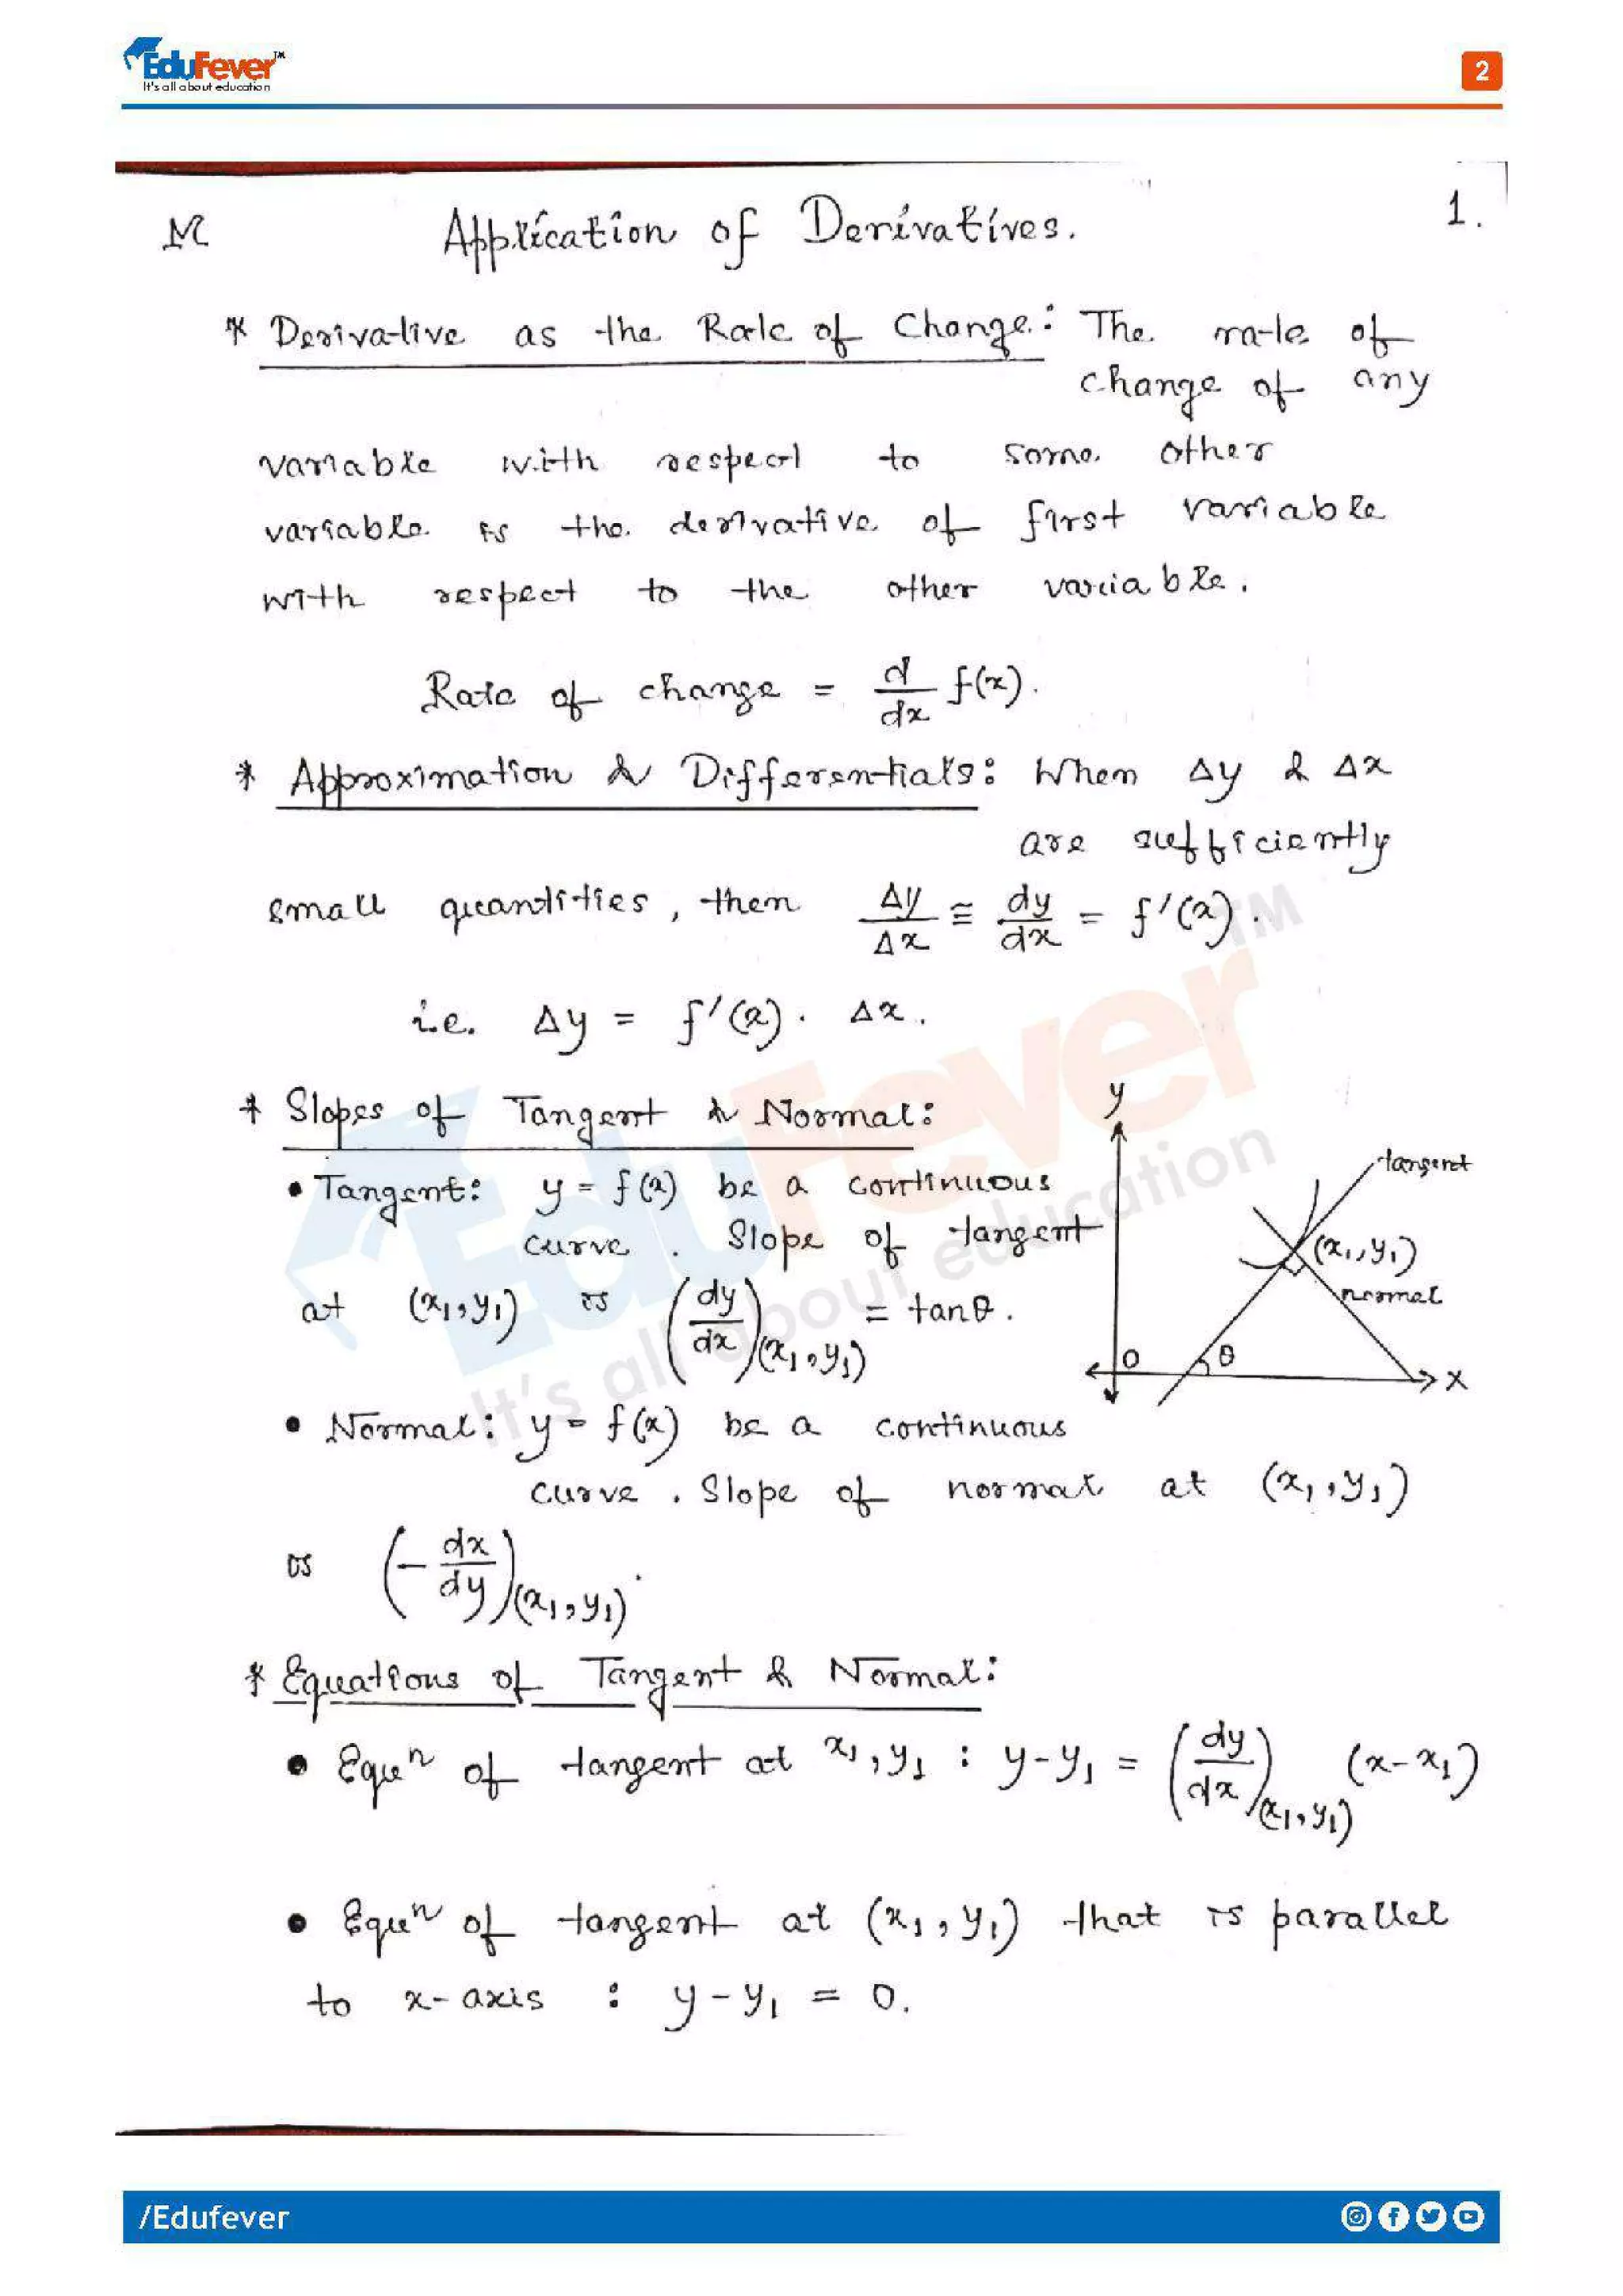 EduFever™
It's all about education
2
M
Application of Derivatives.
1.
* Derivative as the Rate of Change: The rate of
change of any
variable with respect to some other
variable is the derivative of first variable
with respect to the other variable.
Rate of change = d/dx f(x).
* Approximation & Differentials: When Δy & Δx
are sufficiently
small quantities, then Δy/Δx ≅ dy/dx = f'(x).
i.e. Δy = f'(x) · Δx.
* Slopes of Tangent & Normal:
• Tangent: y = f(x) be a continuous
curve. Slope of tangent
at (x₁,y₁) is (dy/dx)(x₁,y₁) = tanθ.
y
tangent
(x₁,y₁)
normal
O
θ
X
• Normal: y = f(x) be a continuous
curve. Slope of normal at (x₁,y₁)
is (-dx/dy)(x₁,y₁).
* Equations of Tangent & Normal:
• Equⁿ of tangent at x₁,y₁ : y-y₁ = (dy/dx)(x₁,y₁) (x-x₁)
• Equⁿ of tangent at (x₁,y₁) that is parallel
to x-axis : y-y₁ = 0.
EduFever™
It's all about education
/Edufever